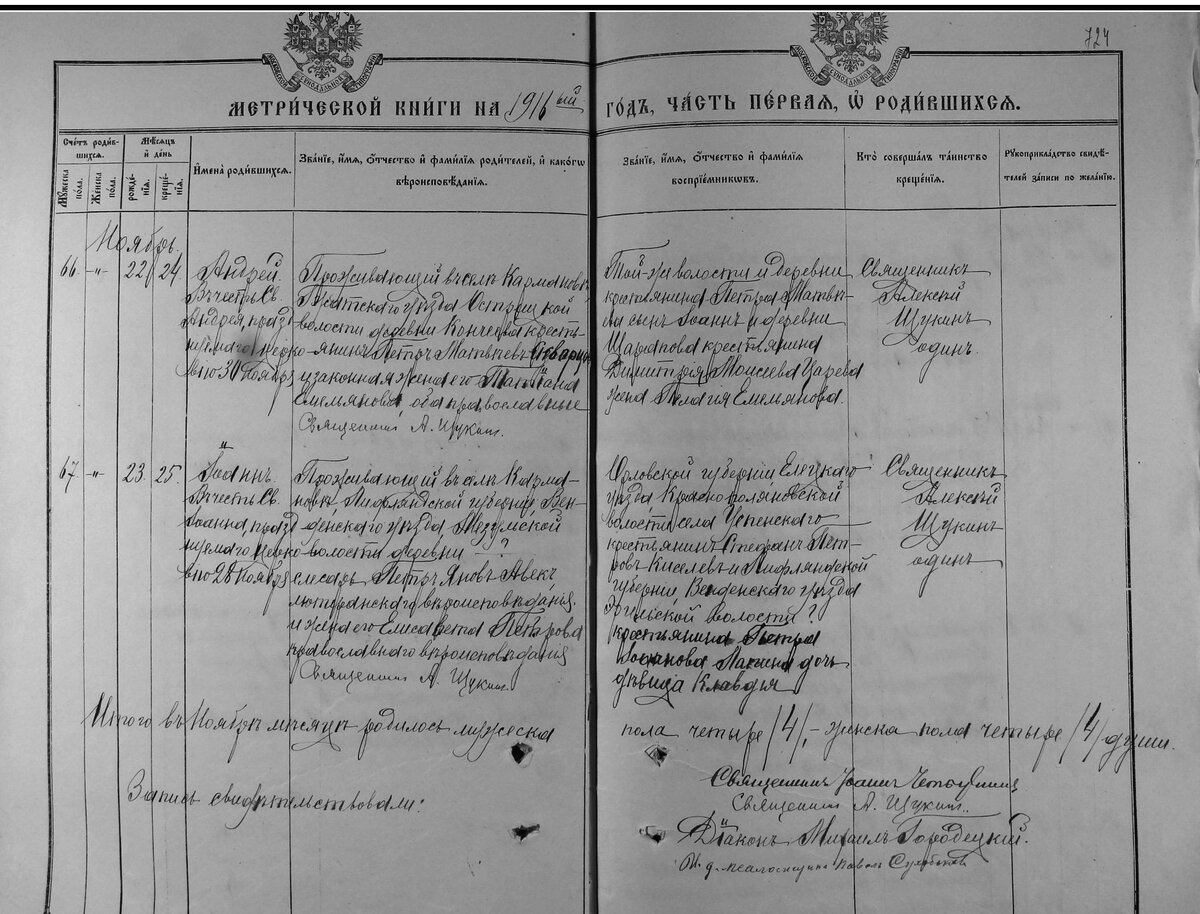 724
МЕТРИЧЕСКОЙ КНИГИ НА 1916ый ГОДЪ, ЧАСТЬ ПЕРВАЯ, Ѡ РОДИВШИХСЯ.
Счетъ родившихся.
Мужеска пола.
Женска пола.
Мѣсяцъ и день
рожденія.
крещенія.
Имена родившихся.
Званіе, имя, отчество и фамилія родителей, и какогѡ вѣроисповѣданія.
Званіе, имя, отчество и фамилія воспріемниковъ.
Кто совершалъ таинство крещенія.
Рукоприкладство свидѣтелей записи по желанію.
Ноябрь.
66. -"- 22 24
Андрей.
Въ честь Св.
Андрея, празд-
нуемаго церко-
вію 30 Ноября
Проживающій въ селѣ Кармановѣ,
Гжатскаго уѣзда Острицкой
волости деревни Кончева кресть-
янинъ Петръ Матвѣевъ
и законная жена его Татіана
Емельянова, оба православные
Священникъ А. Щукинъ.
Той-же волости и деревни
крестьянина Петра Матвѣ-
ева сынъ Іоаннъ и деревни
Царапова крестьянина
Димитрія Моисеева Царева
жена Пелагія Емельянова.
Священникъ
Алексій
Щукинъ
одинъ.
67. -"- 23. 25.
Іоаннъ.
Въ честь Св.
Іоанна, празд-
нуемаго, церко-
вію 28 Ноября
Проживающій въ селѣ Карма-
новѣ, Лифляндской губерніи, Вен-
денскаго уѣзда,
волости деревни - ?
слесарь Петръ Яновъ Авекъ,
лютеранскаго вѣроисповѣданія.
и жена его Елисавета Петрова
православнаго вѣроисповѣданія
Священникъ А. Щукинъ.
Орловской губерніи Елецкаго
уѣзда, Краснополяновской
волости села Успенскаго
крестьянинъ Стефанъ Пет-
ровъ Киселевъ и Лифляндской
губерніи, Венденскаго уѣзда
волости ?
крестьянина Петра
Іоаннова дочь
дѣвица Клавдія
Священникъ
Алексій
Щукинъ
одинъ
Итого въ Ноябрѣ мѣсяцѣ родилось мужеска пола четыре /4/, - женска пола четыре /4/ души.
Запись свидѣтельствовали:
Священникъ Іоаннъ
Священникъ А. Щукинъ.
Діаконъ Михаилъ Городецкій.
И. д. псаломщика Павелъ